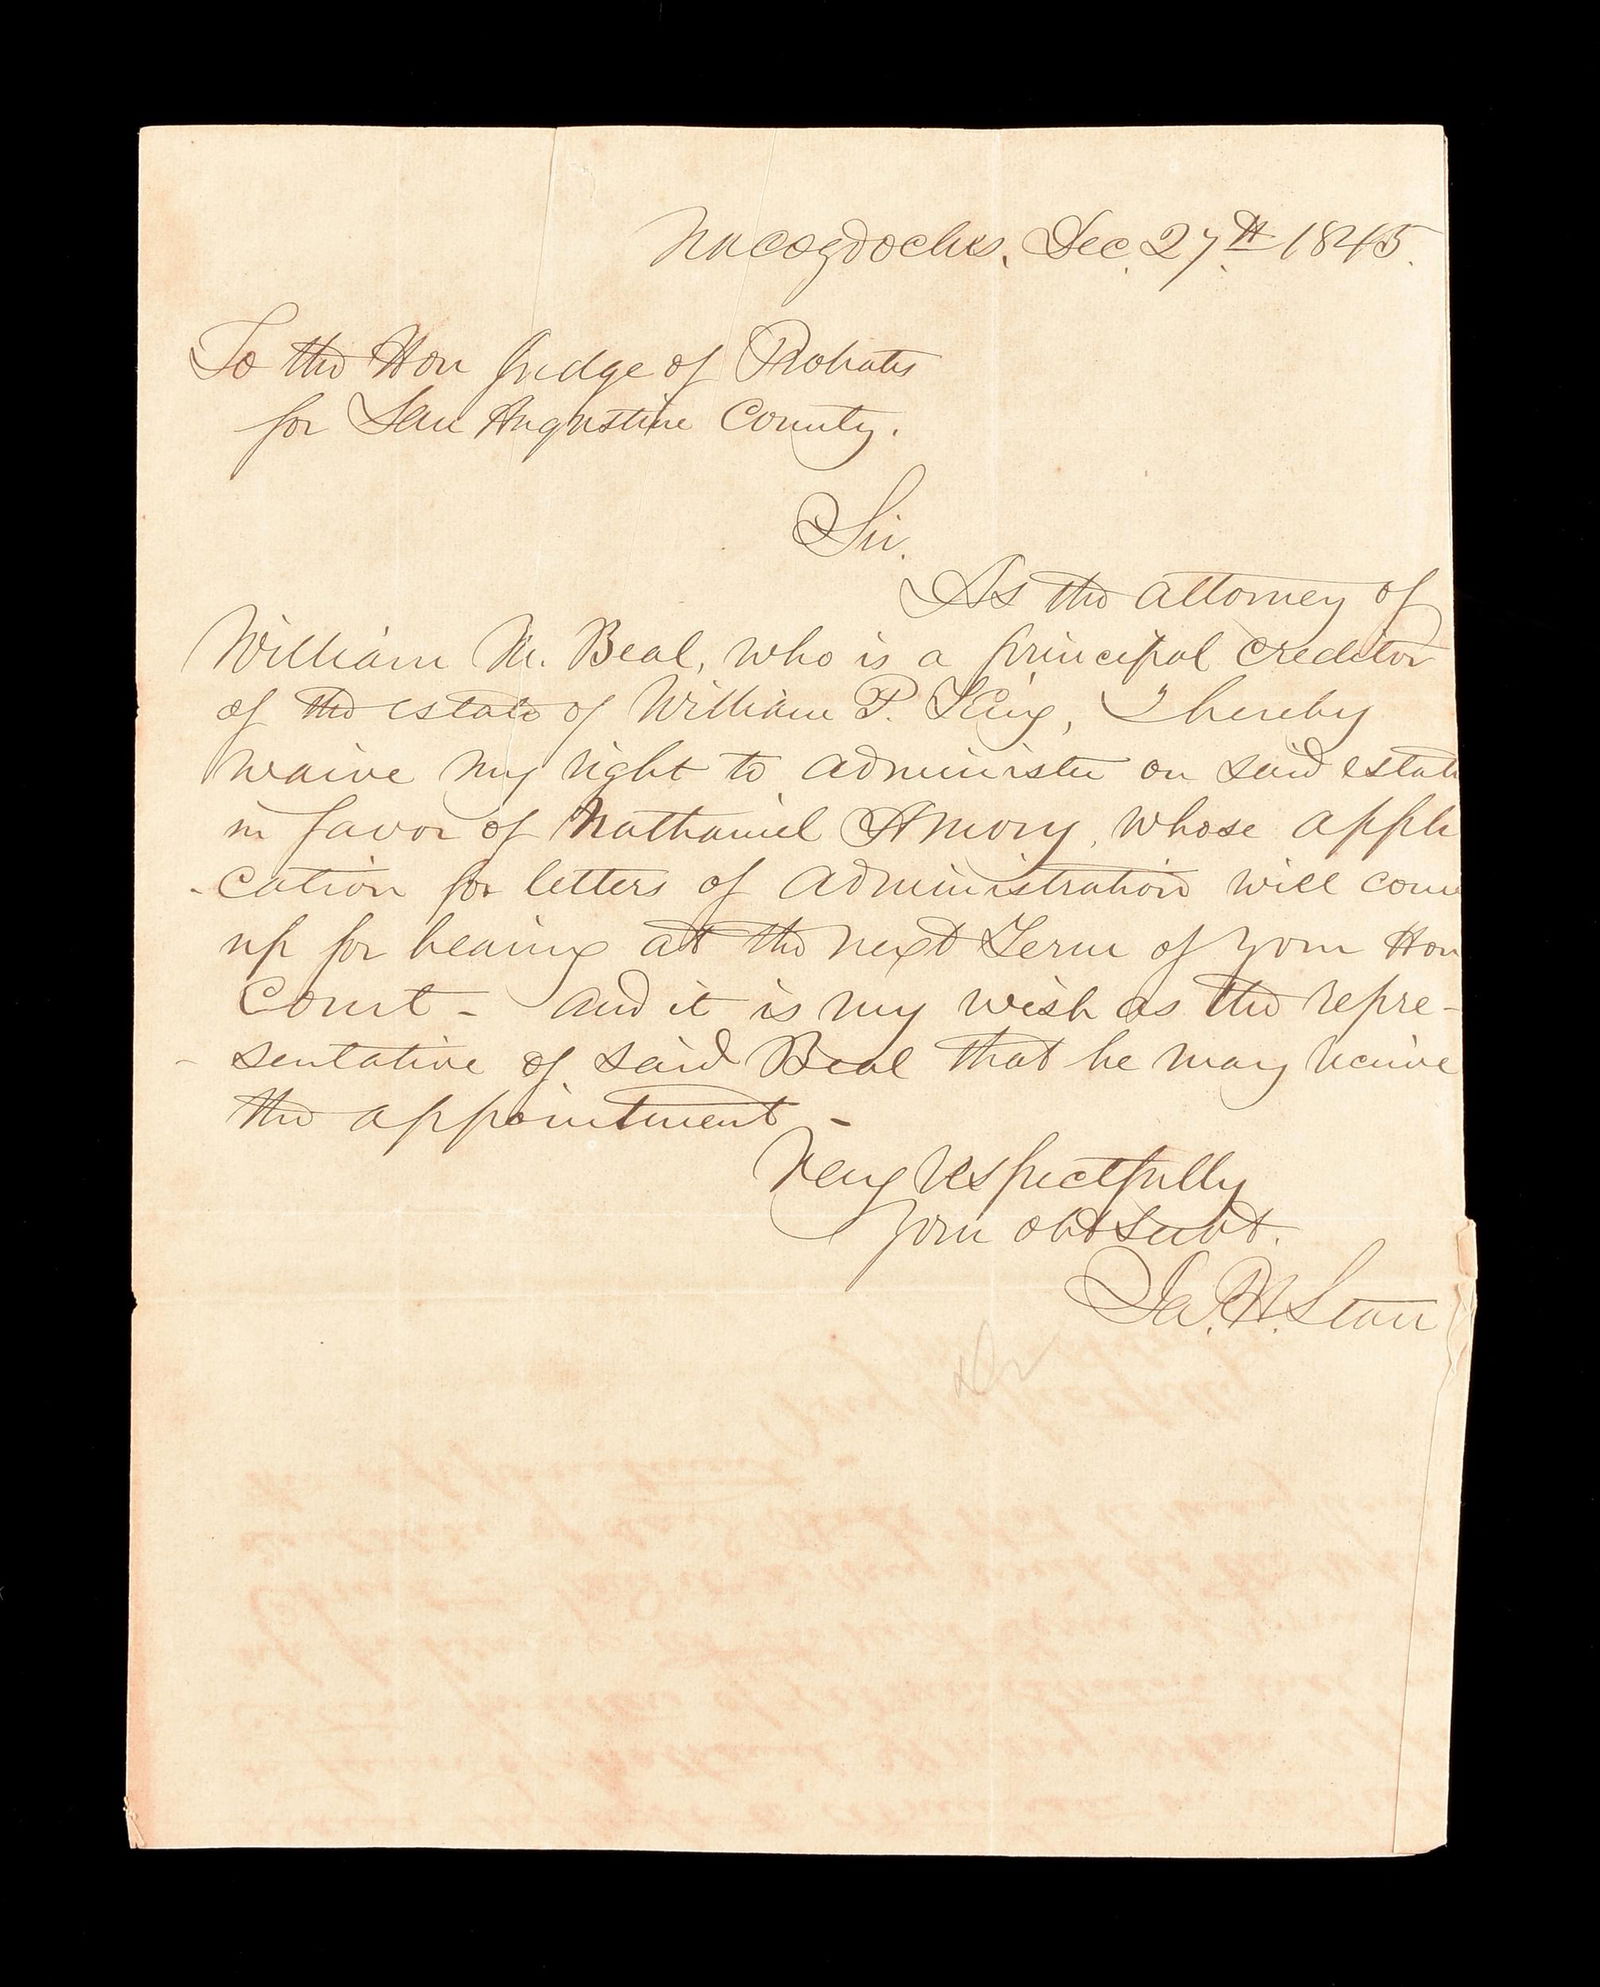 Nacogdoches, Dec. 27th 1845.
To the Hon Judge of Probate
for San Augustine County.
Sir.
As the attorney of
William M. Beal, who is a principal creditor
of the estate of William P. King, I hereby
waive my right to administer on said estate
in favor of Nathaniel Amory, whose appli
-cation for letters of administration will come
up for hearing at the next Term of your Hon
Court - and it is my wish as the repre-
-sentative of said Beal that he may receive
the appointment -
Very respectfully
Your obt Servt.
Ja. H. Starr